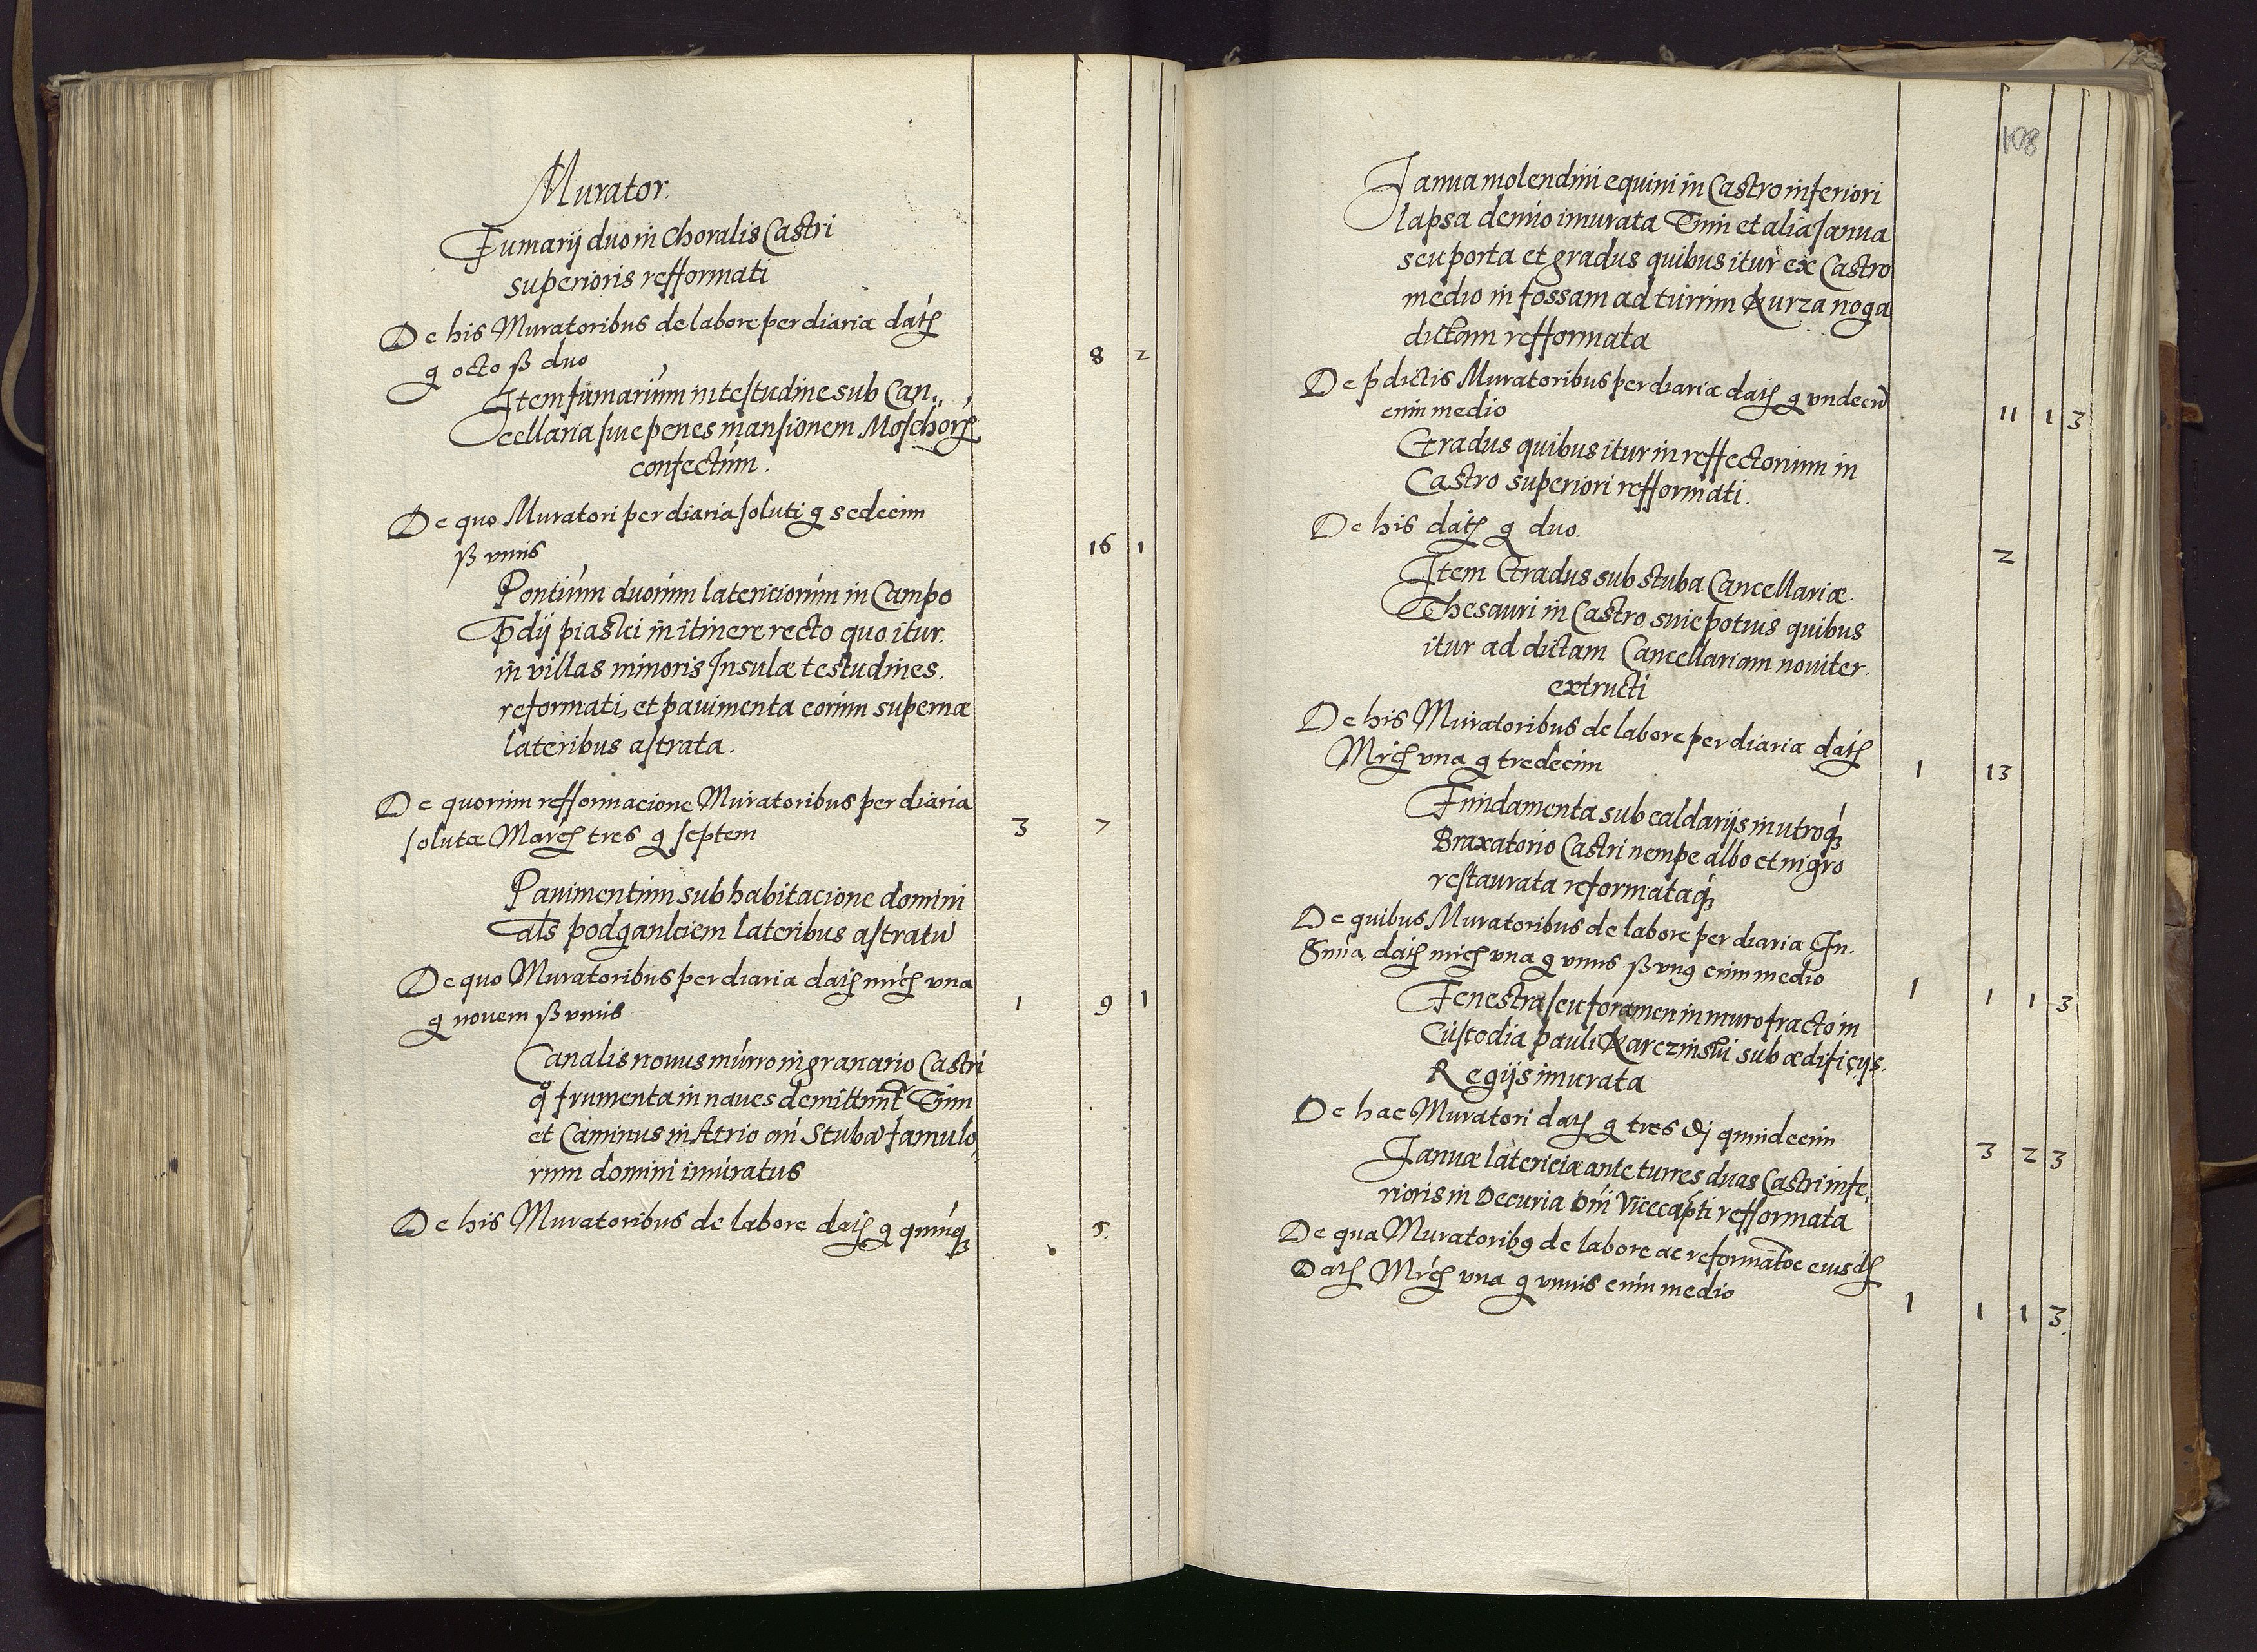 Murator.
Fumarij duo in Choralis Castri
superioris refformati
De his Muratoribus de labore per diaria datȝ
g octo ß duo 8 2
Item fumarium in testudine sub Can„
cellaria siue penes mansionem Moschorȝ
confectum.
De quo Muratori per diaria soluti g sedecim
ß vnus 16 1
Pontium duorum latericiorum in Campo
pdij piaski in itinere recto quo itur.
in villas minoris Insulæ testudines.
reformati, et pauimenta eorum supernæ
lateribus astrata.
De quorum refformacione Muratoribus per diaria
solutæ Marcȝ tres g septem 3 7
Pauimentum sub habitacione domini
als podgankiem lateribus astratū
De quo Muratoribus per diaria datȝ mrcȝ vna
g nouem ß vnus 1 9 1
Canalis nouus murro in granario Castri
q° frumenta in naues demittunt Tum
et Caminus in Atrio an Stubā famulo„
rum domini imuratus
De his Muratoribus de labore datȝ g quinqȝ 5.
108
Janua molendini equini in Castro inferiori
lapsa denuo imurata Tum et alia Janua
seu porta et gradus quibus itur ex Castro
medio in fossam ad turrim Kurza noga
dictam refformata
De pdictis Muratoribus per diaria datȝ g vndecī
cum medio 11 1 3
Gradus quibus itur in reffectorium in
Castro superiori refformati.
De his datȝ g duo. 2
Item Gradus sub stuba Cancellariæ.
Thesauri in Castro, siue potius quibus
itur ad dictam Cancellariam nouiter.
extructi
De his Muratoribus de labore per diaria datȝ
Mrcȝ vna g tredecim 1 13
Fundamenta sub caldarijs in utroqȝ
Braxatorio Castri nempe albo et nigro
restaurata reformataqȝ
De quibus Muratoribus de labore per diaria In.
Sum̃a datȝ mrcȝ vna g vnus ß vnꝯ cum medio 1 1 1 3
Fenestra seu foramen in muro fracto in
Custodia pauli Karczinski sub ædificijs.
Regijs imurata
De hac Muratori datȝ g tres đj quindecim 3 2 3
Januæ latericiæ ante turres duas Castri infe„
rioris in Decuria Dni Vicecapti refformata
De qua Muratoribꝯ de labore ac reformatõe eiusdȝ
Datȝ Mrcȝ vna g vnus cum medio 1 1 1 3.